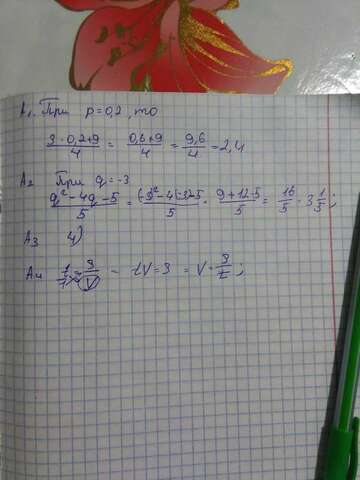 А1. При p=0,2, то
3·0,2+9/4 = 0,6+9/4 = 9,6/4 = 2,4
А2 При q=-3
q²-4q-5/5 = (-3)²-4(-3)-5/5 = 9+12-5/5 = 16/5 = 3 1/5;
А3 4)
А4 t/1 = 3/V - tV=3 = V = 3/t;